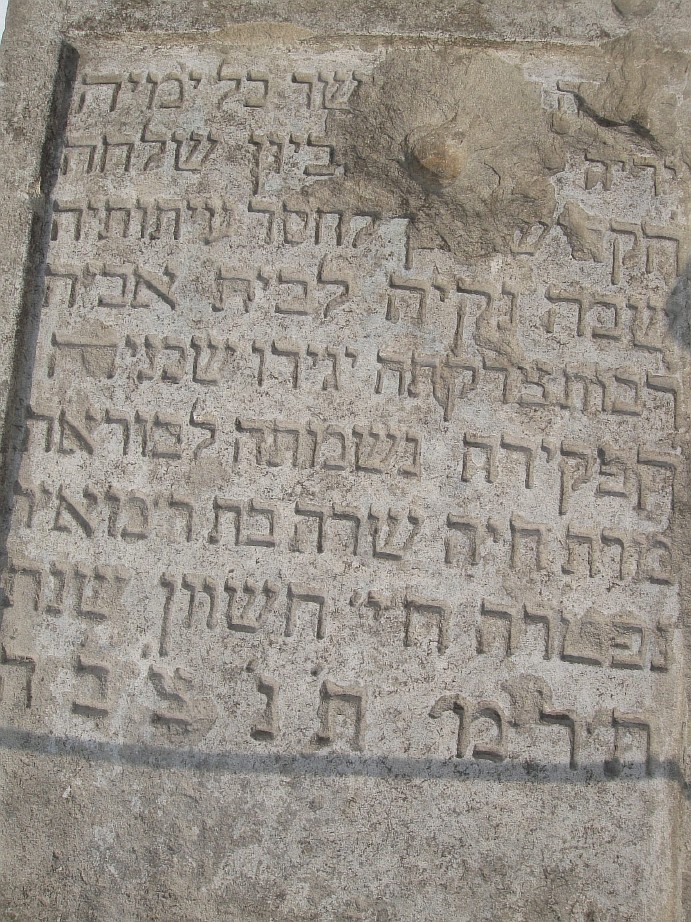 כל ימיה
ידיה ביון שלחה
לחסד עיתותיה
שמה נקיה לבית אביה
רבות צדקתה יגידו שכניה
הפקידה נשמתה לבוראה
מרת חיה שרה בת ר'
נפטרה ח"י חשוון שנת
תר"מ ת' נ' צ' ב' ה'